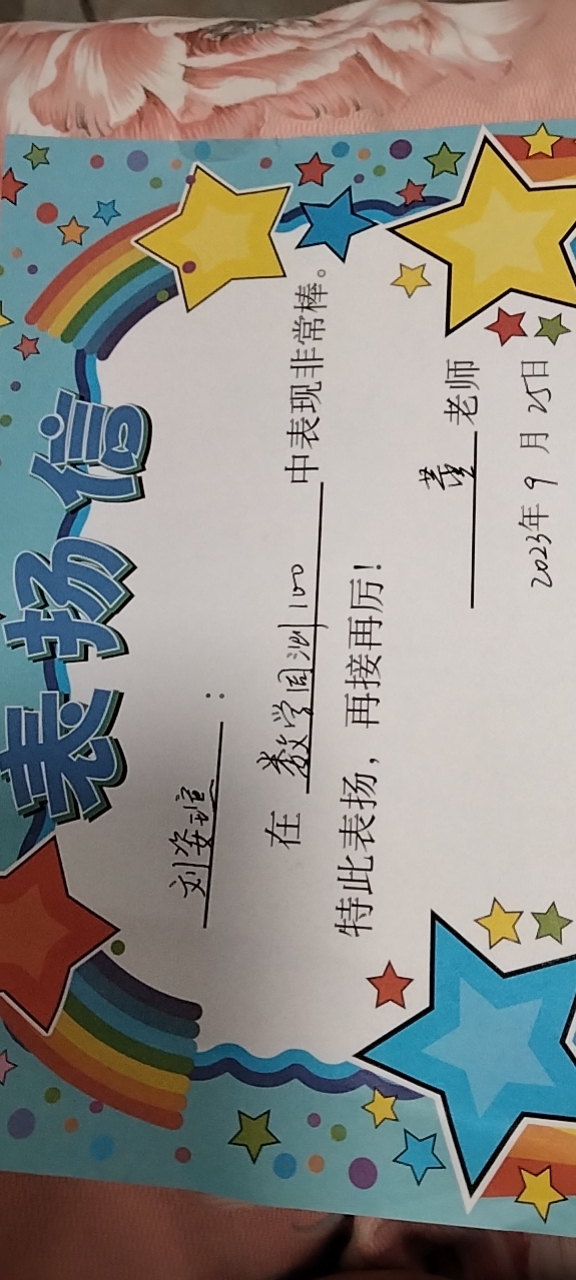 表扬信
刘姿瑄:
在数学周测100中表现非常棒。
特此表扬，再接再厉!
董老师
2023年9月25日